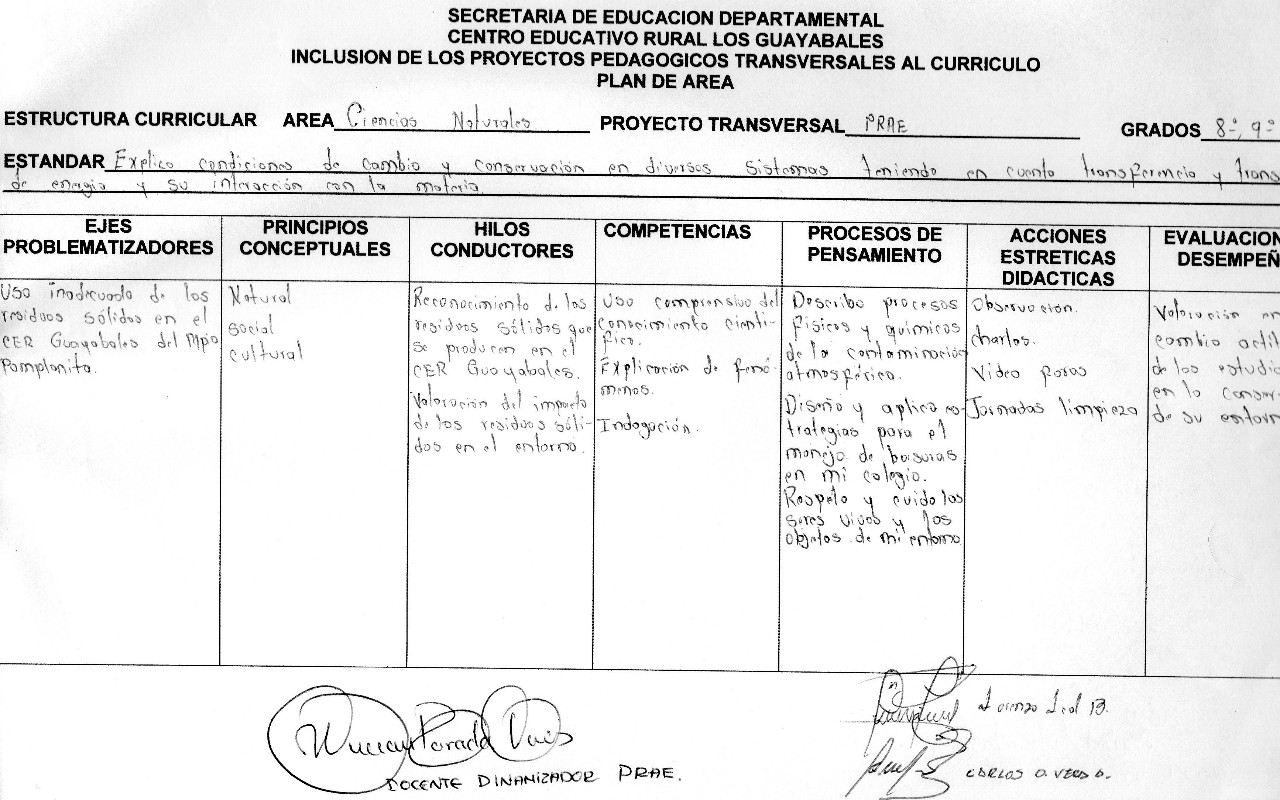 SECRETARIA DE EDUCACION DEPARTAMENTAL
CENTRO EDUCATIVO RURAL LOS GUAYABALES
INCLUSION DE LOS PROYECTOS PEDAGOGICOS TRANSVERSALES AL CURRICULO
PLAN DE AREA
ESTRUCTURA CURRICULAR AREA Ciencias Naturales PROYECTO TRANSVERSAL PRAE GRADOS 8º, 9º
ESTANDAR Explico condiciones de cambio y conservación en diversos sistemas teniendo en cuenta transferencia y trans
de energia y su interacción con la materia
EJES
PROBLEMATIZADORES
Uso inadecuado de los
residuos sólidos en el
CER Guayabales del Mpo
Pamplonita.
PRINCIPIOS
CONCEPTUALES
Natural
social
cultural
HILOS
CONDUCTORES
Reconocimiento de los
residuos sólidos que
se producen en el
CER Guayabales.
Valoración del impacto
de los residuos sóli-
dos en el entorno.
COMPETENCIAS
Uso comprensivo del
conocimiento cientí-
fico.
Explicación de fenó-
menos.
Indagación.
PROCESOS DE
PENSAMIENTO
Describo procesos
físicos y químicos
de la contaminación
atmosférica.
Diseño y aplico es-
trategias para el
manejo de basuras
en mi colegio.
Respeto y cuido los
seres vivos y los
objetos de mi entorno
ACCIONES
ESTRETICAS
DIDACTICAS
Observación.
charlas.
Video foros
Jornadas limpieza
EVALUACION
DESEMPEÑ
Valoración en
cambio actit
de los estudia
en la conser
de su entorn
DOCENTE DINANIZADOR PRAE.
CARLOS O. VERA